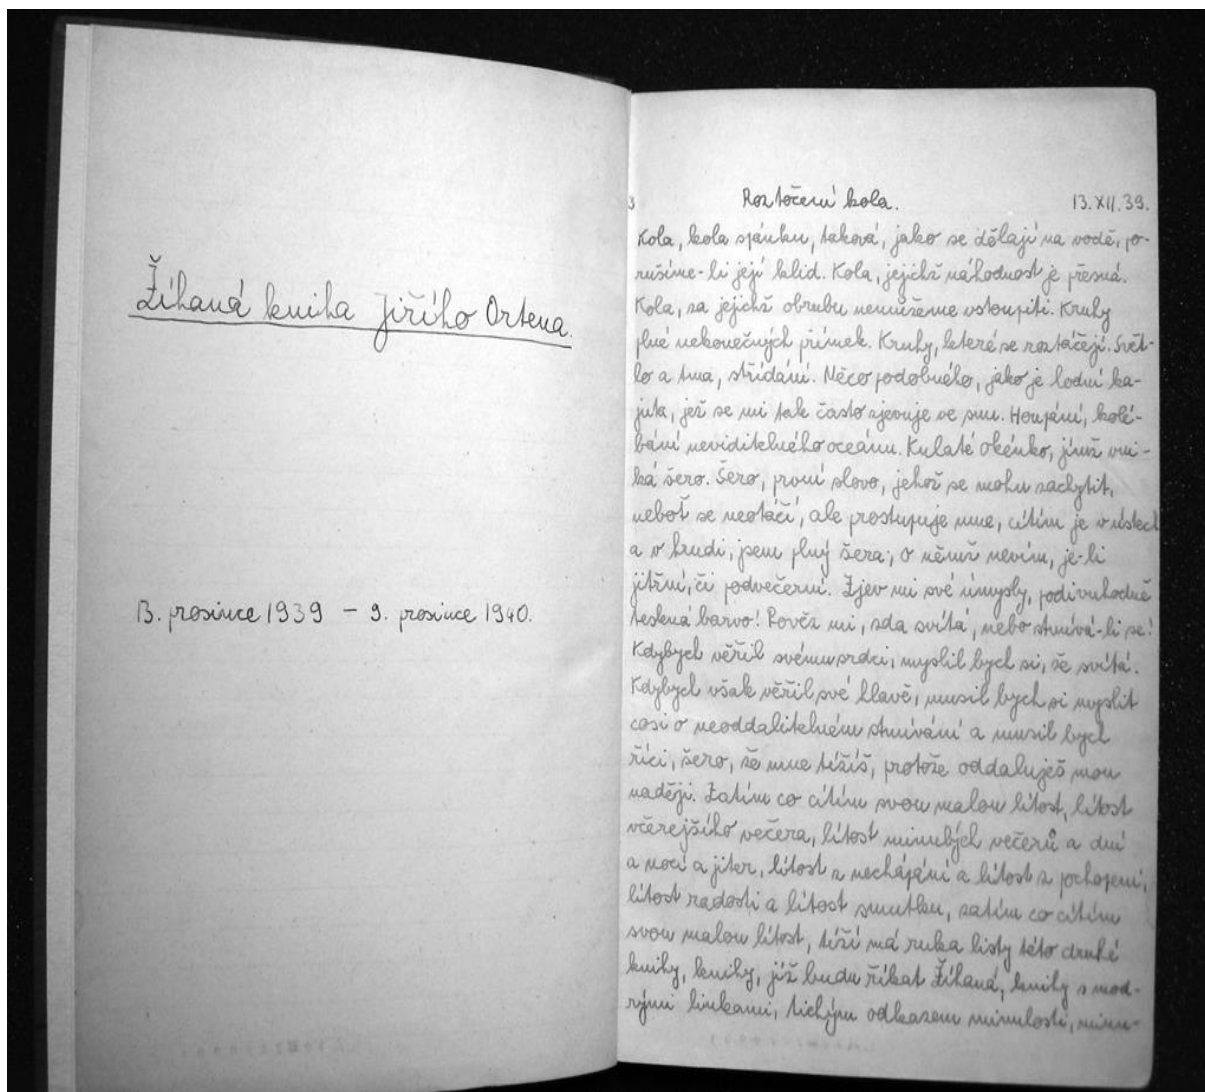 Žíhaná kniha Jiřího Ortena.
13. prosince 1939 – 9. prosince 1940.
3 Roztočení kola. 13. XII. 39.
Kola, kola spánku, taková, jako se dělají na vodě, po-
rušíme-li její klid. Kola, jejichž náhodnost je přesná.
Kola, za jejichž obrubu nemůžeme vstoupiti. Kruhy
plné nekonečných přímek. Kruhy, které se roztáčejí. Svět-
lo a tma, střídání. Něco podobného, jako je lodní ka-
juta, jež se mi tak často zjevuje ve snu. Houpání, kolé-
bání neviditelného oceánu. Kulaté okénko, jímž vni-
ká šero. Šero, první slovo, jehož se mohu zachytit,
neboť se neotáčí, ale prostupuje mne, cítím je v ústech
a v hrudi, jsem plný šera, o němž nevím, je-li
jitřní, či podvečerní. Zjev mi své úmysly, podivuhodně
teskná barvo! Pověz mi, zda svítá, nebo stmívá-li se!
Kdybych věřil svému srdci, myslil bych si, že svítá.
Kdybych však věřil své hlavě, musil bych si myslit
cosi o neoddalitelném stmívání a musil bych
říci, šero, že mne tížíš, protože oddaluješ mou
naději. Zatím co cítím svou malou lítost, lítost
včerejšího večera, lítost minulých večerů a dní
a nocí a jiter, lítost z nechápání a lítost z pochopení,
lítost radosti a lítost smutku, zatím co cítím
svou malou lítost, tíží má ruka listy této druhé
knihy, knihy, již budu říkat Žíhaná, knihy s mod-
rými linkami, tichým odkazem minulosti, minu-